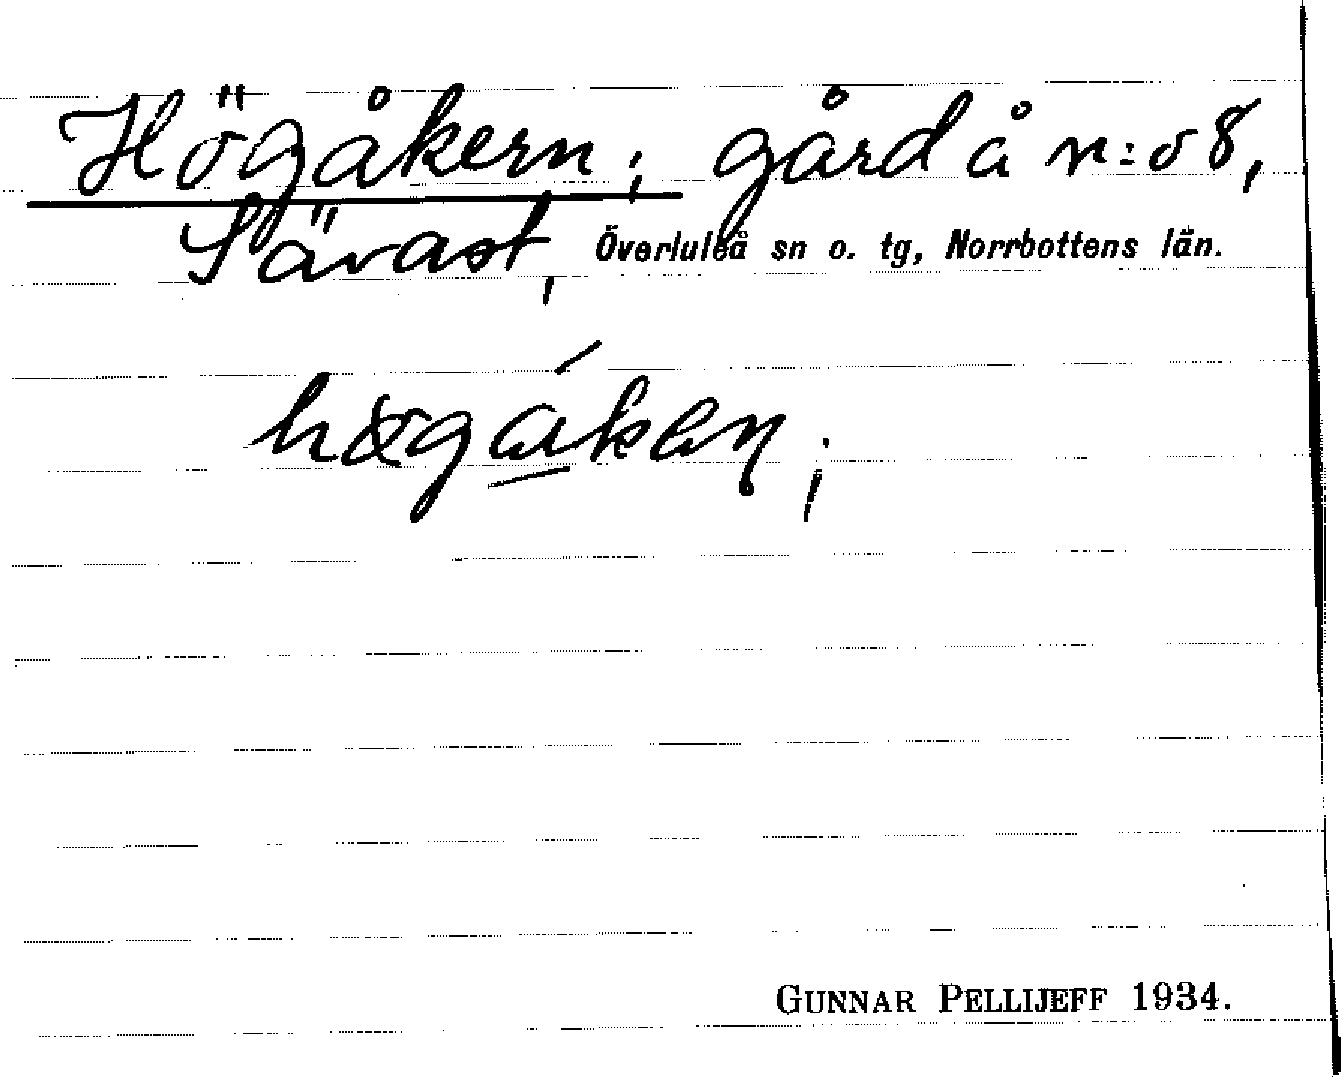 Högåkern; gård å n:o 8,
Sävast, Överluleå sn o. tg, Norrbottens län.
GUNNAR PELLIJEFF 1934.